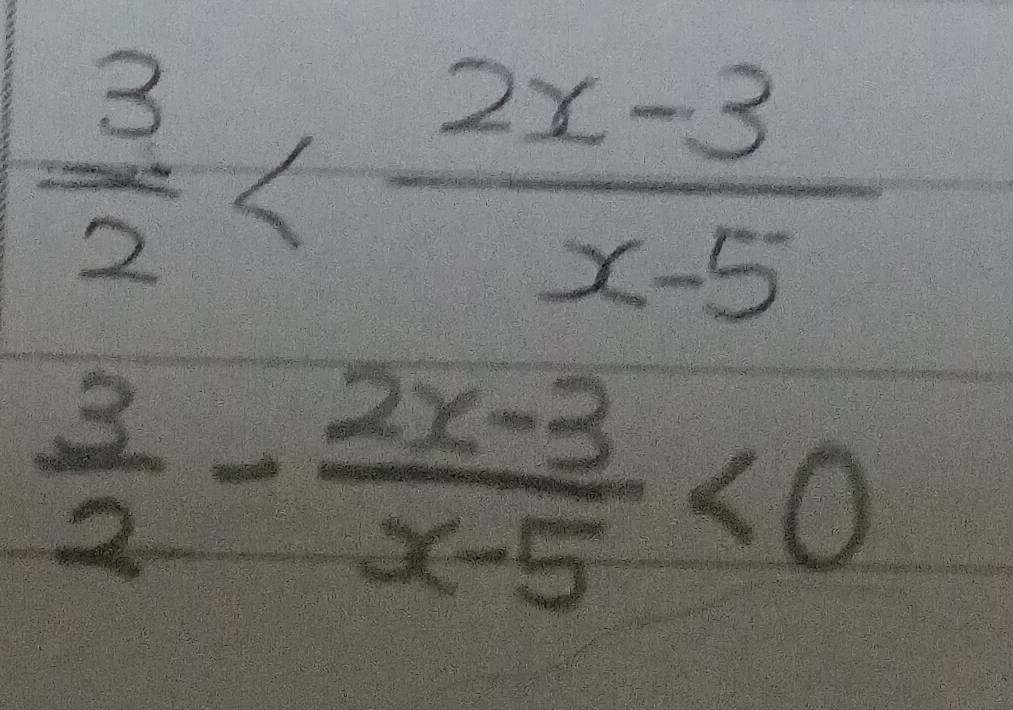 3/2 < (2x-3)/(x-5)
3/2 - (2x-3)/(x-5) < 0